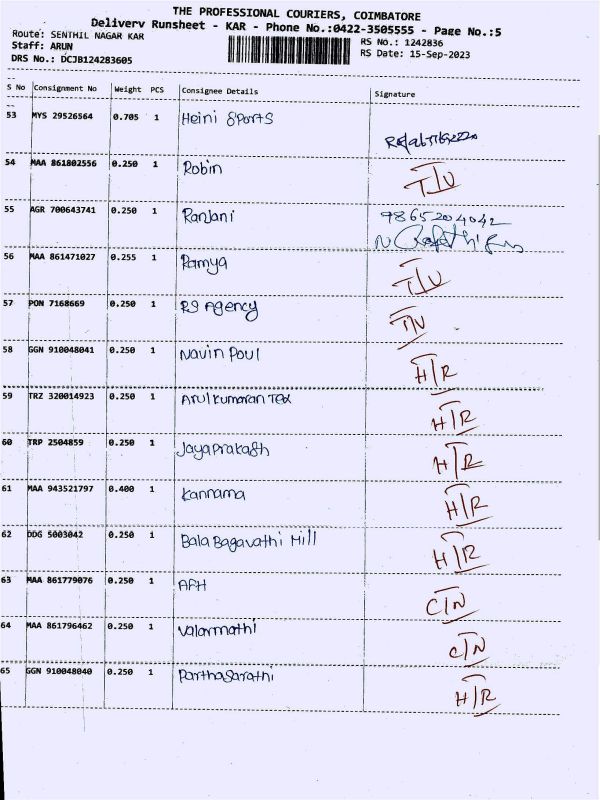 THE PROFESSIONAL COURIERS, COIMBATORE
Delivery Runsheet - KAR - Phone No.:0422-3505555 - Page No.:5
Route: SENTHIL NAGAR KAR
RS No.: 1242836
Staff: ARUN
RS Date: 15-Sep-2023
DRS No.: DCJB124283605
S No Consignment No Weight PCS Consignee Details Signature
53 MYS 29526564 0.705 1 Heini Sports
54 MAA 861802556 0.250 1 Robin T/V
55 AGR 700643741 0.250 1 Ranjani 9865204042
56 MAA 861471027 0.255 1 Ramya T/V
57 PON 7168669 0.250 1 RS Agency T/V
58 GGN 910048041 0.250 1 Navin Poul H/R
59 TRZ 320014923 0.250 1 Arulkumaran Tex H/R
60 TRP 2504859 0.250 1 Jayaprakash H/R
61 MAA 943521797 0.400 1 Kannama H/R
62 DDG 5003042 0.250 1 Bala Bagavathi Mill H/R
63 MAA 861779076 0.250 1 AFH C/N
64 MAA 861796462 0.250 1 Valarmathi C/N
65 GGN 910048040 0.250 1 Parthasarathi H/R